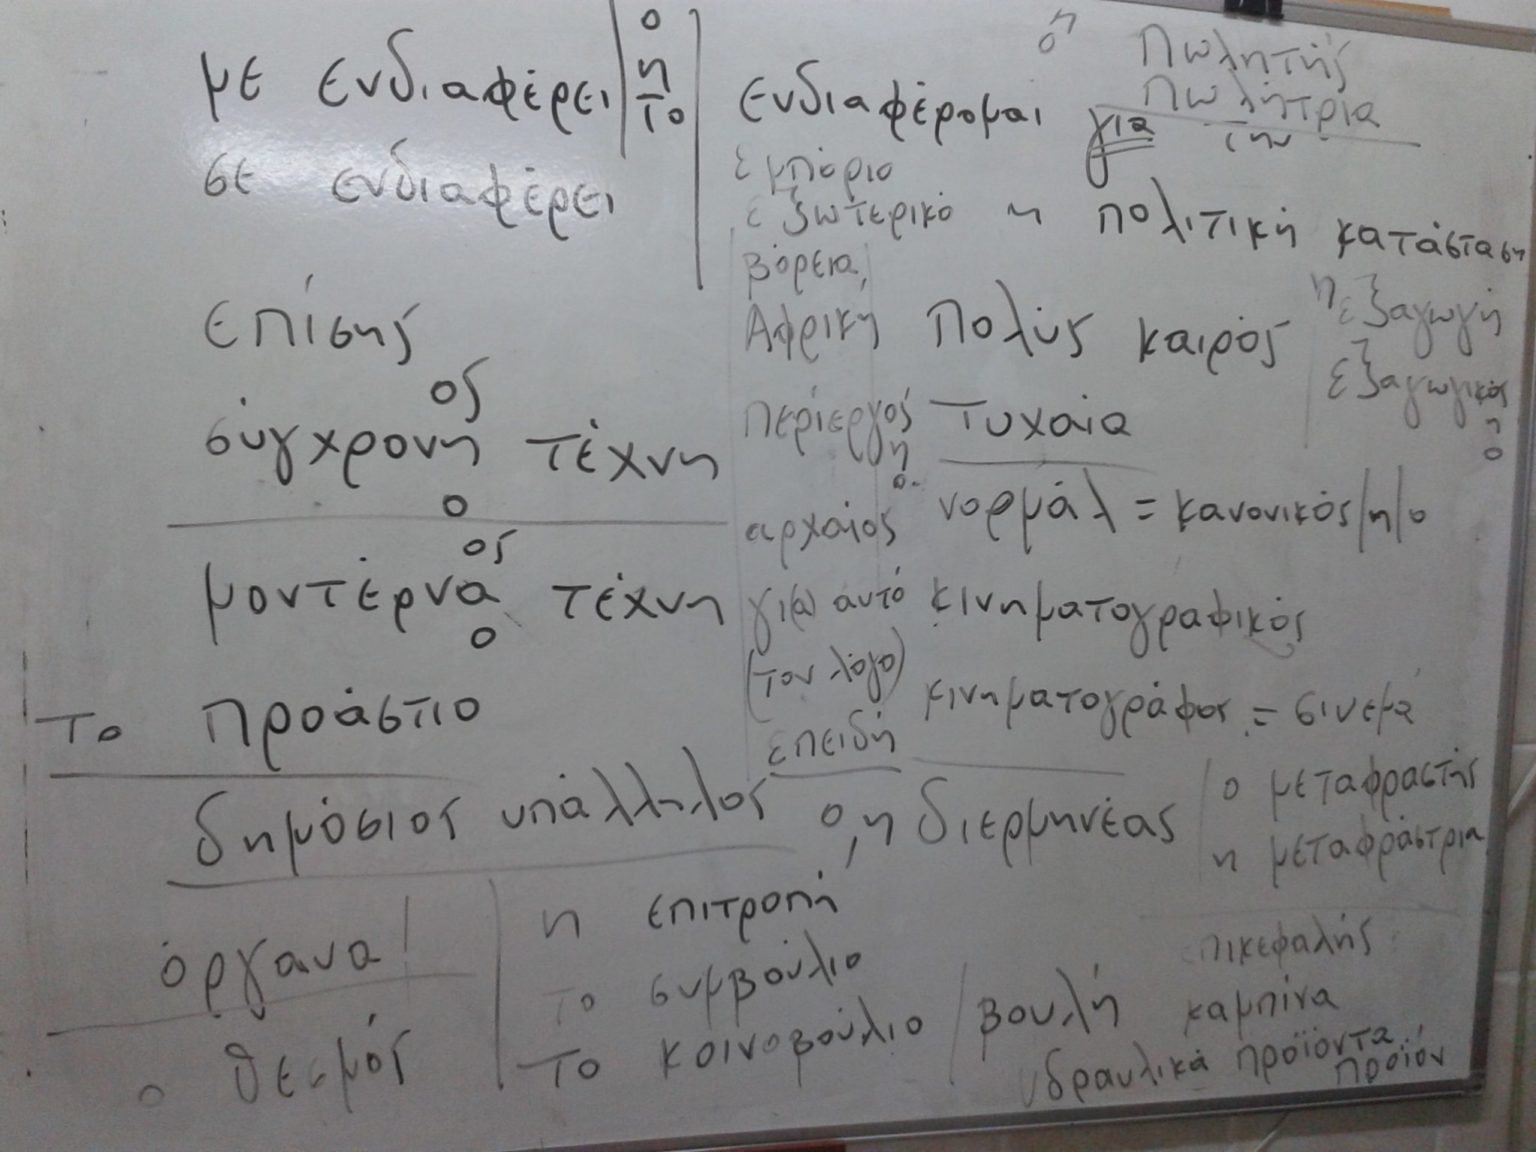 με ενδιαφέρει ο
η
το
σε ενδιαφέρει
επίσης
ος
σύγχρονη τέχνη
ο
ος
μοντέρνα τέχνη
ο
το προάστιο
δημόσιος υπάλληλος
όργανα!
ο θεσμός
ενδιαφέρομαι για την
ο η Πωλητής
Πωλήτρια
εμπόριο
εξωτερικό
βόρεια
Αφρική
περίεργος
η
ο
αρχαίος
γι(α) αυτό
(τον λόγο)
επειδή
η πολιτική κατάσταση
Πολύς καιρός
η εξαγωγή
εξαγωγικός
η
ο
Τυχαία
νορμάλ = κανονικός/η/ο
κινηματογραφικός
κινηματογράφος = σινεμά
ο, η διερμηνέας
ο μεταφραστής
η μεταφράστρια
η επιτροπή
το συμβούλιο
το κοινοβούλιο / βουλή
επικεφαλής
καμπίνα
υδραυλικά προϊόντα
προϊόν